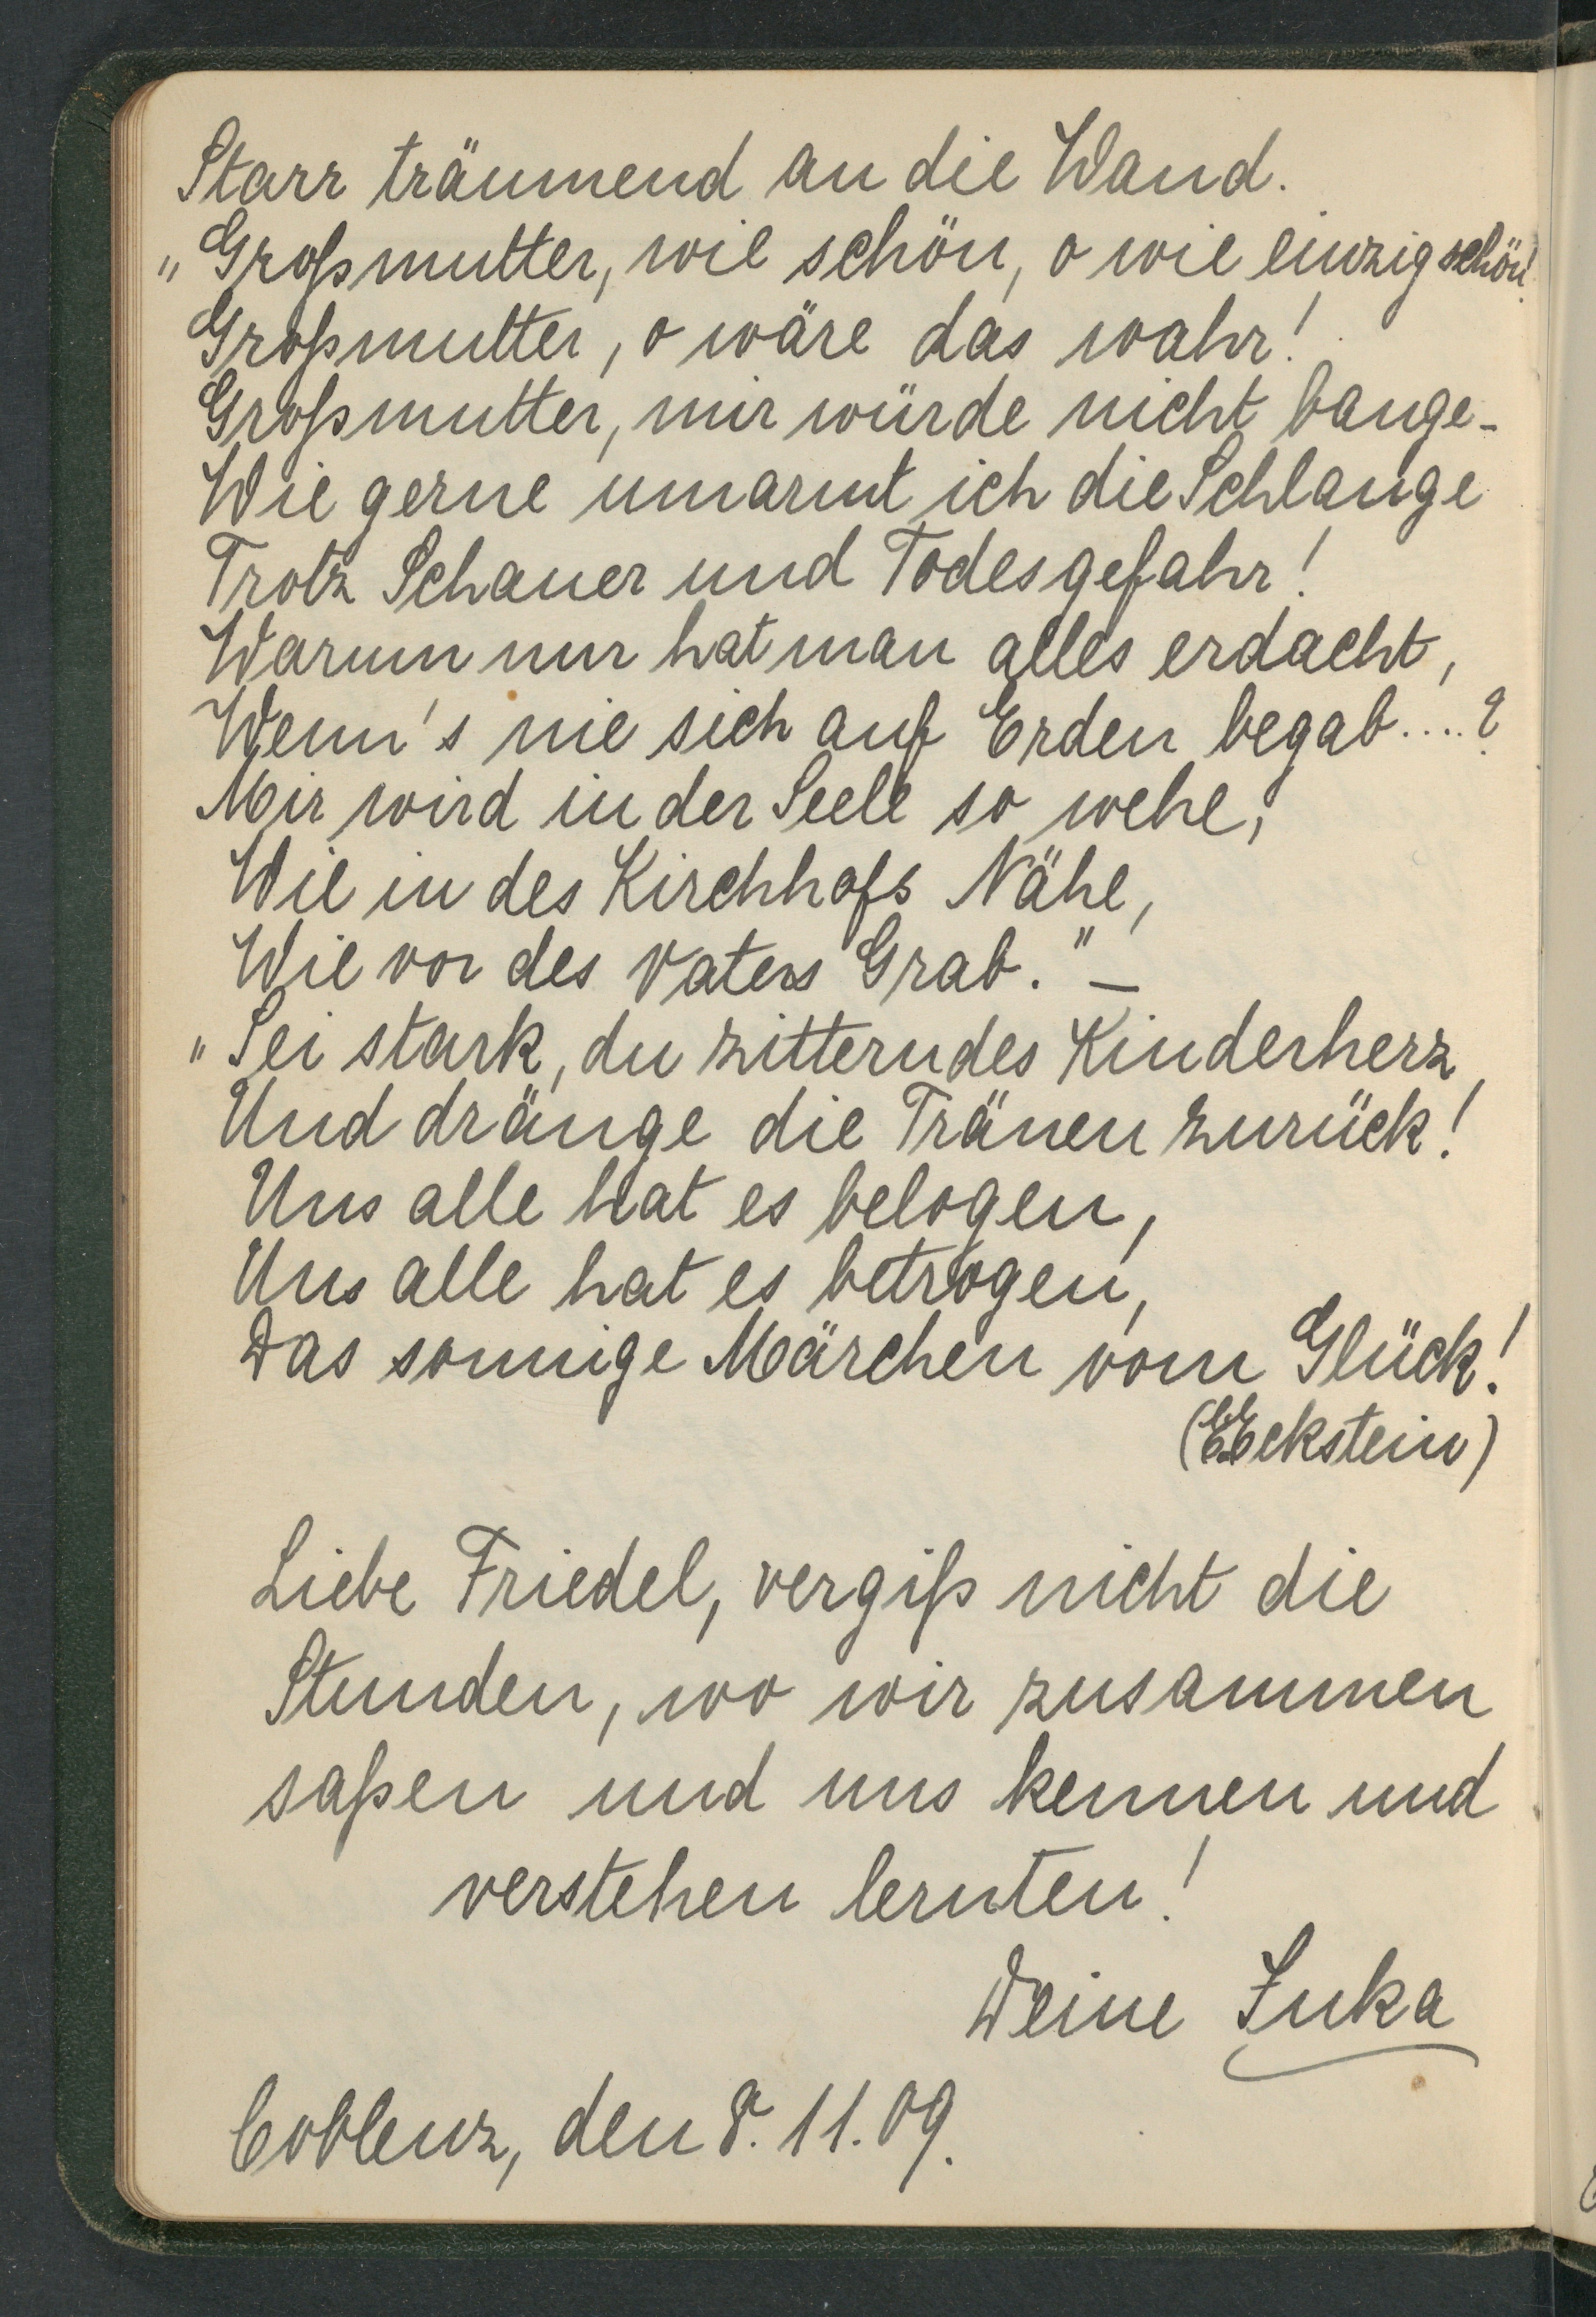 Starr träumend an die Wand.
„Großmutter, wie schön, o wie einzig schön!
Großmutter, o wäre das wahr!
Großmutter, mir würde nicht bange-
Wie gerne umarmt ich die Schlange
Trotz Schauer und Todesgefahr!
Warum nur hat man alles erdacht,
Wenn's nie sich auf Erden begab....?
Mir wird in der Seele so wehe,
Wie in des Kirchhofs Nähe,
Wie vor des Vaters Grab."–
„Sei stark, du zitterndes Kinderherz
Und dränge die Tränen zurück!
Uns alle hat es belogen,
Uns alle hat es betrogen,
Das sonnige Märchen vom Glück!
Eckstein)
Liebe Friedel, vergiß nicht die
Stunden, wo wir zusammen
saßen und uns kennen und
verstehen lernten!
Deine
Coblenz, den 8.11.09.